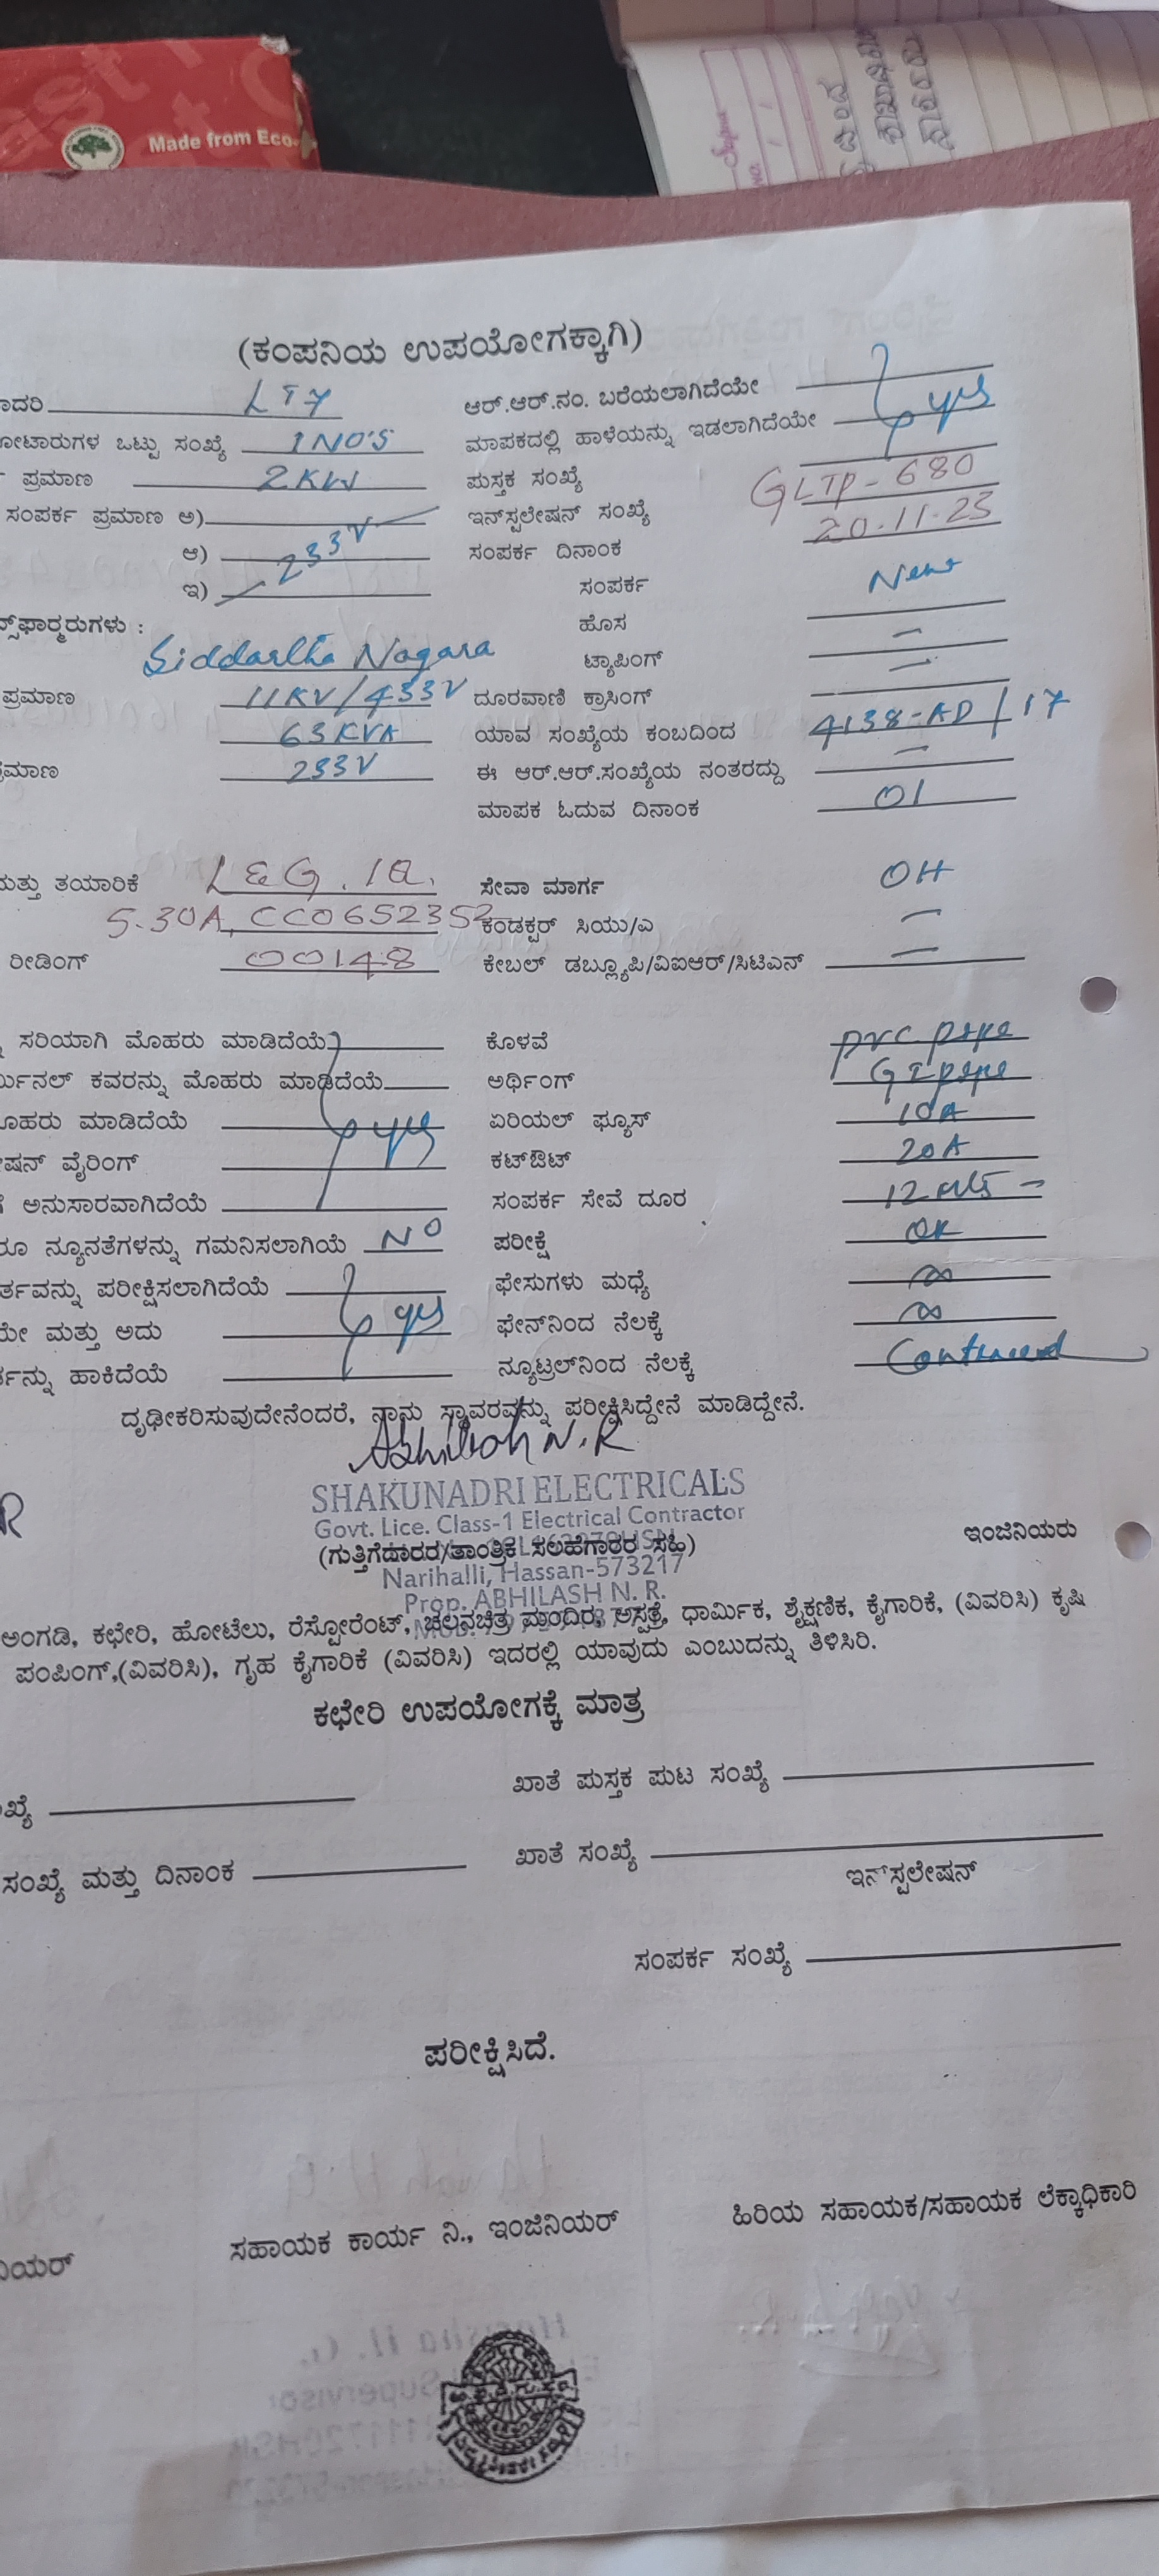 Made from Eco
(ಕಂಪನಿಯ ಉಪಯೋಗಕ್ಕಾಗಿ)
ಾದರಿ LT7 ಆರ್.ಆರ್.ನಂ. ಬರೆಯಲಾಗಿದೆಯೇ
ೋಟಾರುಗಳ ಒಟ್ಟು ಸಂಖ್ಯೆ 1 NO'S ಮಾಪಕದಲ್ಲಿ ಹಾಳೆಯನ್ನು ಇಡಲಾಗಿದೆಯೇ yes
ಪ್ರಮಾಣ 2KW ಪುಸ್ತಕ ಸಂಖ್ಯೆ
ಸಂಪರ್ಕ ಪ್ರಮಾಣ ಅ) ಇನ್‌ಸ್ಟಲೇಷನ್ ಸಂಖ್ಯೆ GLTP-680
ಆ) 233V ಸಂಪರ್ಕ ದಿನಾಂಕ 20.11.23
ಇ) ಸಂಪರ್ಕ New
ನ್ಸ್‌ಫಾರ್ಮರುಗಳು : ಹೊಸ
Siddartha Nagara ಟ್ಯಾಪಿಂಗ್ —
ಪ್ರಮಾಣ 11KV/433V ದೂರವಾಣಿ ಕ್ರಾಸಿಂಗ್ —
63KVA ಯಾವ ಸಂಖ್ಯೆಯ ಕಂಬದಿಂದ 4138-AD/17
ರಮಾಣ 233V ಈ ಆರ್.ಆರ್.ಸಂಖ್ಯೆಯ ನಂತರದ್ದು —
ಮಾಪಕ ಓದುವ ದಿನಾಂಕ 01
ಮತ್ತು ತಯಾರಿಕೆ L&G. 1Q. ಸೇವಾ ಮಾರ್ಗ OH
5-30A, CC0652352 ಕಂಡಕ್ಟರ್ ಸಿಯು/ಎ —
ರೀಡಿಂಗ್ 00148 ಕೇಬಲ್ ಡಬ್ಲ್ಯೂಪಿ/ವಿಐಆರ್/ಸಿಟಿಎನ್ —
ಸರಿಯಾಗಿ ಮೊಹರು ಮಾಡಿದೆಯೆ ಕೊಳವೆ PVC pipe
ರ್ಮಿನಲ್ ಕವರನ್ನು ಮೊಹರು ಮಾಡಿದೆಯೆ ಅರ್ಥಿಂಗ್ GI pipe
ೊಹರು ಮಾಡಿದೆಯೆ yes ಏರಿಯಲ್ ಫ್ಯೂಸ್ 10A
ೇಷನ್ ವೈರಿಂಗ್ ಕಟ್‌ಔಟ್ 20A
ೆ ಅನುಸಾರವಾಗಿದೆಯೆ ಸಂಪರ್ಕ ಸೇವೆ ದೂರ 12 mts -
ರೂ ನ್ಯೂನತೆಗಳನ್ನು ಗಮನಿಸಲಾಗಿಯೆ NO ಪರೀಕ್ಷೆ OK
ರ್ತವನ್ನು ಪರೀಕ್ಷಿಸಲಾಗಿದೆಯೆ ಫೇಸುಗಳು ಮಧ್ಯೆ ∞
ಯೇ ಮತ್ತು ಅದು yes ಫೇನ್‌ನಿಂದ ನೆಲಕ್ಕೆ ∞
ರ್ತನ್ನು ಹಾಕಿದೆಯೆ ನ್ಯೂಟ್ರಲ್‌ನಿಂದ ನೆಲಕ್ಕೆ
ದೃಢೀಕರಿಸುವುದೇನೆಂದರೆ, ನಾನು ಸ್ಥಾವರವನ್ನು ಪರೀಕ್ಷಿಸಿದ್ದೇನೆ ಮಾಡಿದ್ದೇನೆ.
Abhilash N.R
SHAKUNADRI ELECTRICALS
Govt. Lice. Class-1 Electrical Contractor
(ಗುತ್ತಿಗೆದಾರರ/ತಾಂತ್ರಿಕ ಸಲಹೆಗಾರರ ಸಹಿ) ಇಂಜಿನಿಯರು
Narihalli, Hassan-573217
Prop. ABHILASH N. R.
ಅಂಗಡಿ, ಕಛೇರಿ, ಹೋಟೆಲು, ರೆಸ್ಟೋರೆಂಟ್, ಚಲನಚಿತ್ರ ಮಂದಿರ, ಅಸ್ಪತ್ರೆ, ಧಾರ್ಮಿಕ, ಶೈಕ್ಷಣಿಕ, ಕೈಗಾರಿಕೆ, (ವಿವರಿಸಿ) ಕೃಷಿ
ಪಂಪಿಂಗ್,(ವಿವರಿಸಿ), ಗೃಹ ಕೈಗಾರಿಕೆ (ವಿವರಿಸಿ) ಇದರಲ್ಲಿ ಯಾವುದು ಎಂಬುದನ್ನು ತಿಳಿಸಿರಿ.
ಕಛೇರಿ ಉಪಯೋಗಕ್ಕೆ ಮಾತ್ರ
ಖ್ಯೆ ಖಾತೆ ಪುಸ್ತಕ ಪುಟ ಸಂಖ್ಯೆ
ಸಂಖ್ಯೆ ಮತ್ತು ದಿನಾಂಕ ಖಾತೆ ಸಂಖ್ಯೆ
ಇನ್‌ಸ್ಟಲೇಷನ್
ಸಂಪರ್ಕ ಸಂಖ್ಯೆ
ಪರೀಕ್ಷಿಸಿದೆ.
ನಿಯರ್ ಸಹಾಯಕ ಕಾರ್ಯ ನಿ., ಇಂಜಿನಿಯರ್ ಹಿರಿಯ ಸಹಾಯಕ/ಸಹಾಯಕ ಲೆಕ್ಕಾಧಿಕಾರಿ